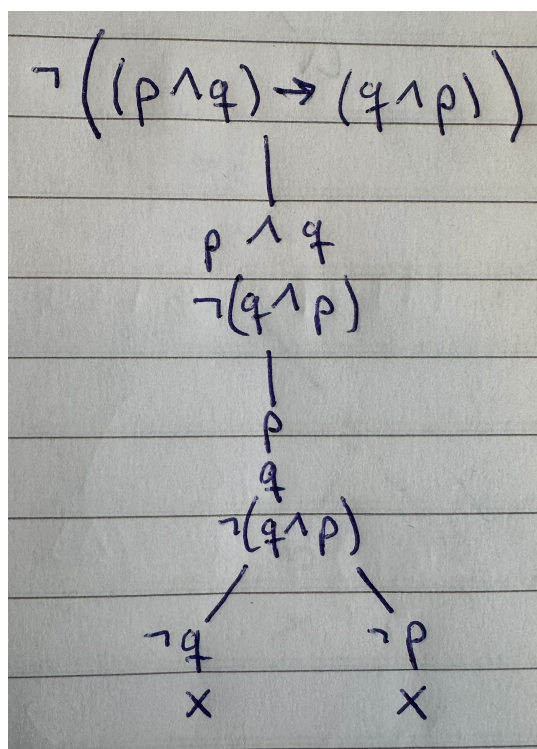 ¬((p∧q)→(q∧p))
p ∧ q
¬(q∧p)
p
q
¬(q∧p)
¬q ¬p
x x